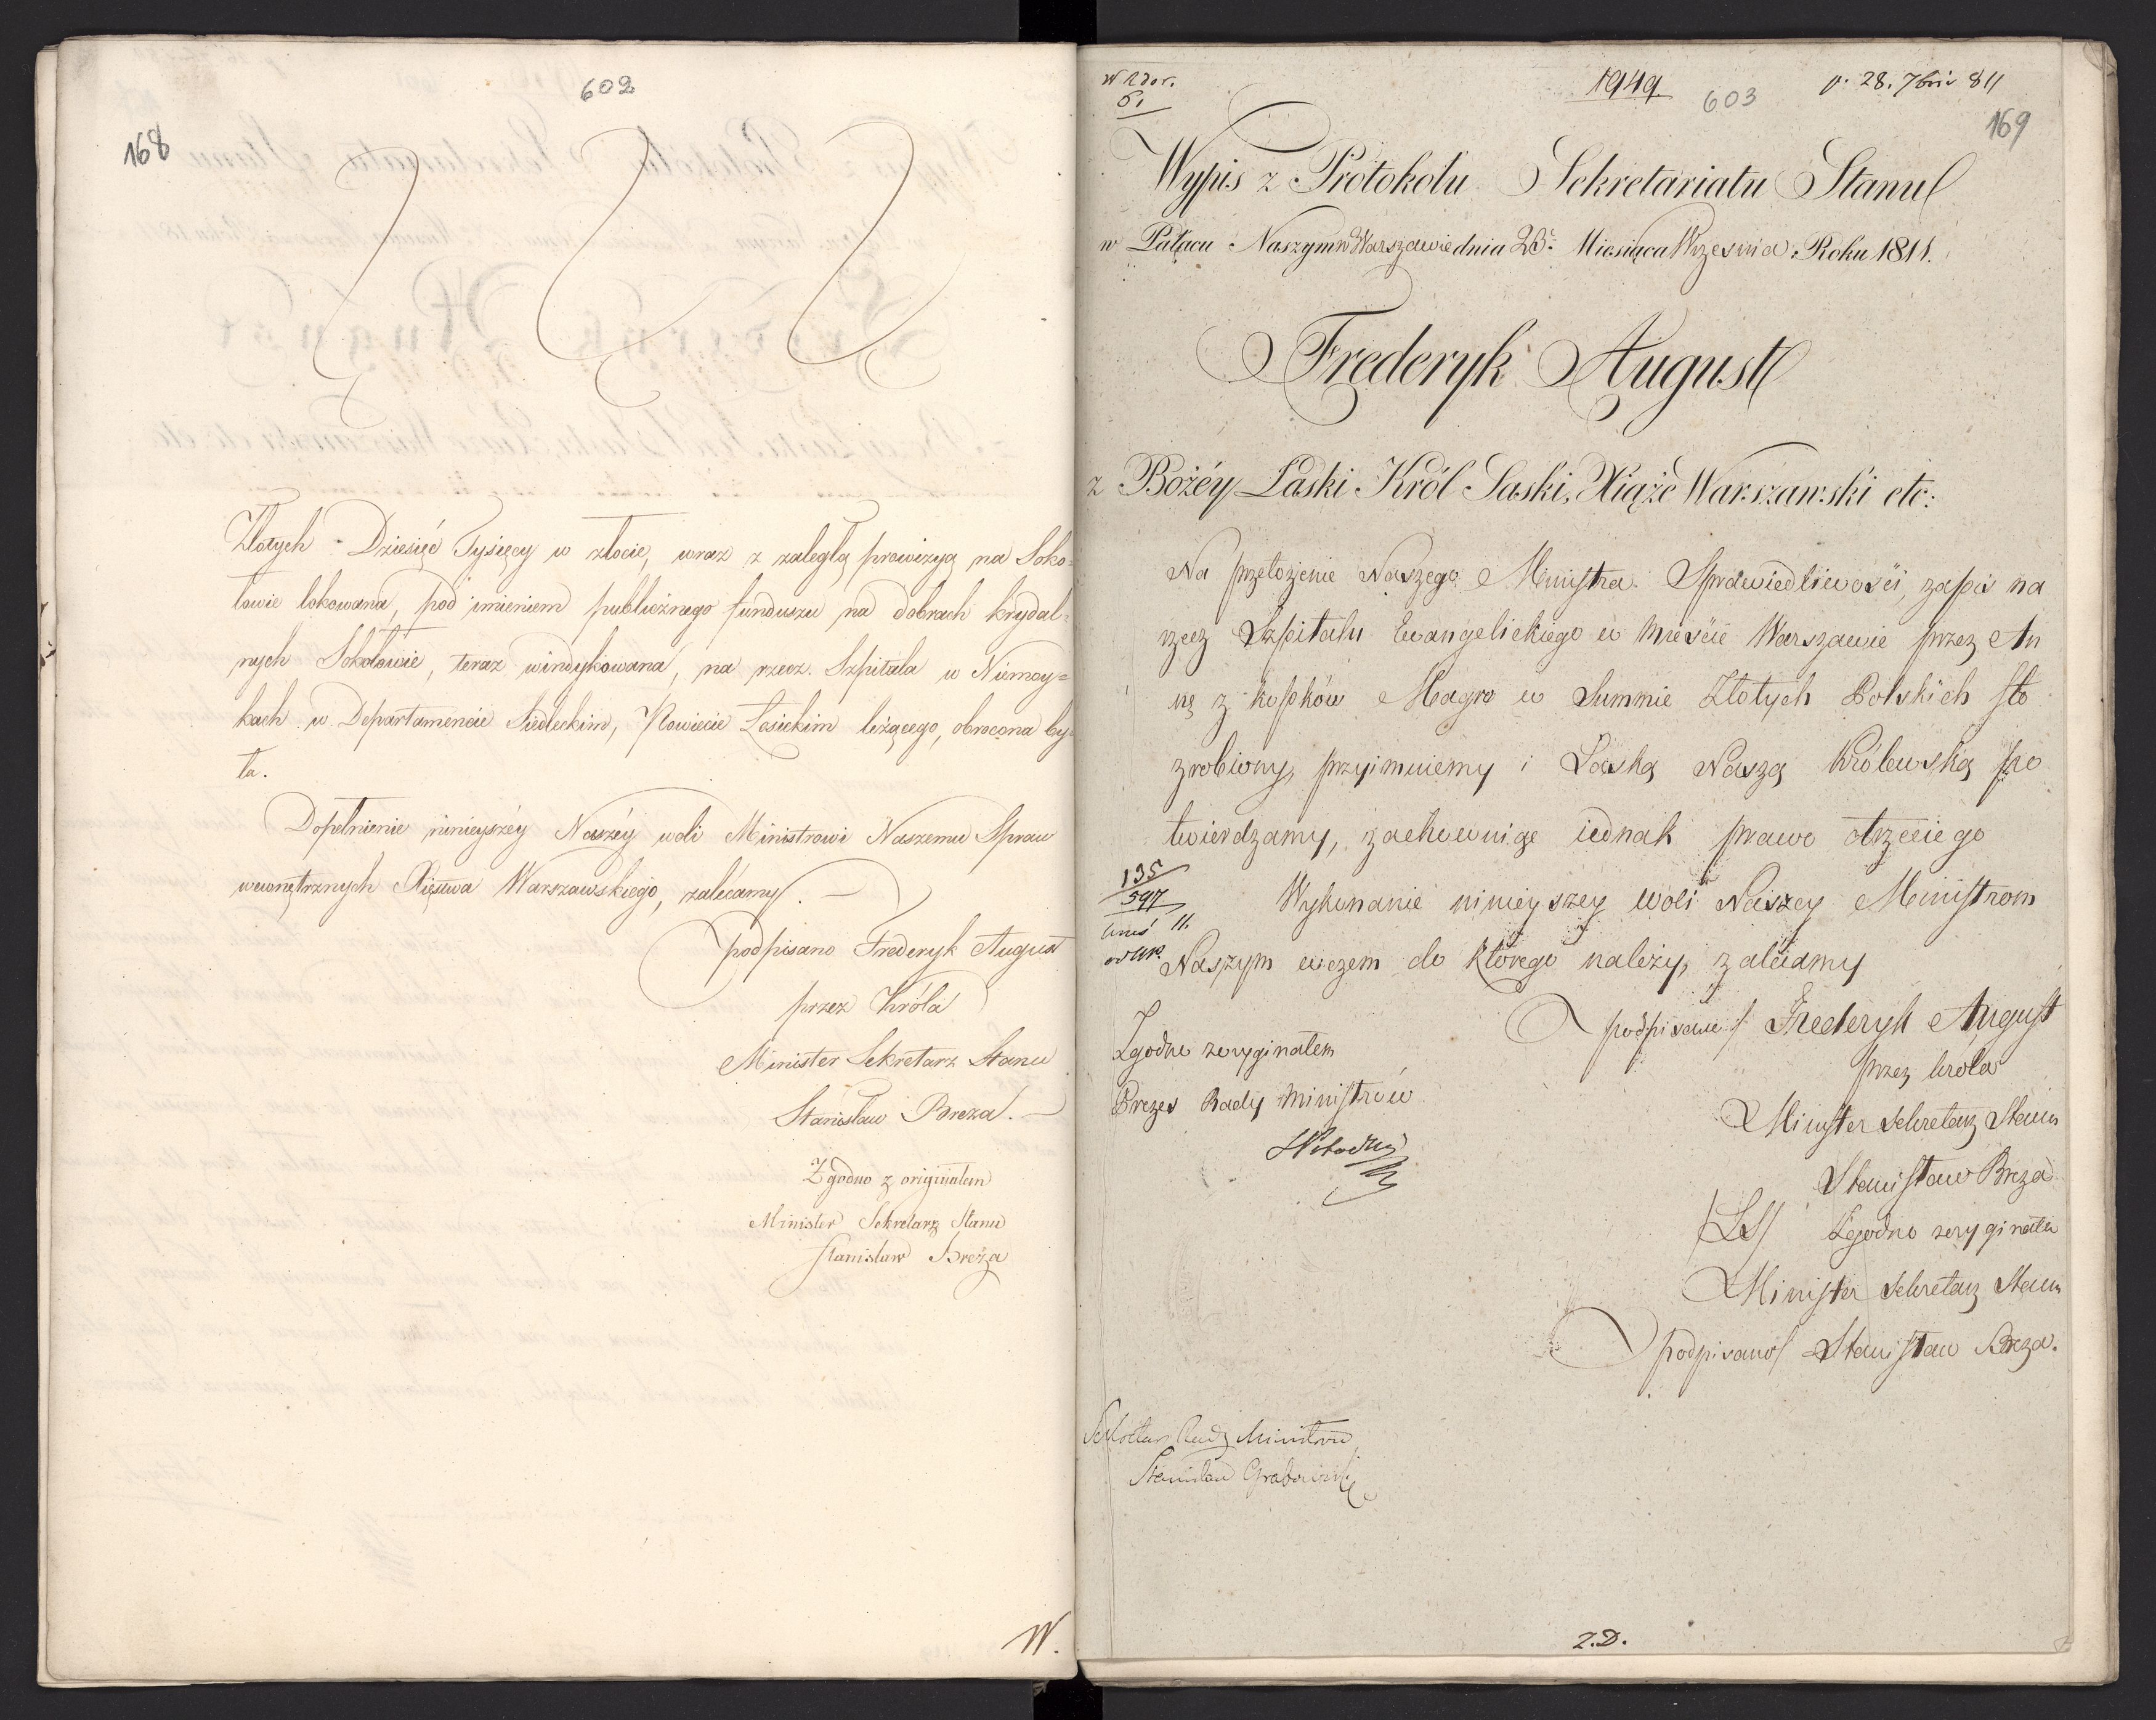 602
168
Złotych Dziesięć Tysięcy w złocie, wraz z zaległą prowizyą na Soko=
łowie lokowana, pod imieniem publicznego funduszu na dobrach krydal=
nych Sokołowie, teraz windykowana, na rzecz Szpitala w Niemoy=
kach w Departamencie Siedleckim, Powiecie Łosickim leżącego, obrocona by
ła.
Dopełnienie ninieyszéy Naszéy woli Ministrowi Naszemu Spraw
wewnętrznych Xięstwa Warszawskiego, zalecamy. —
podpisano Frederyk August
przez Króla
Minister Sekretarz Stanu
Stanisław Breza. —
Zgodno z originałem
Minister Sekretarz Stanu
Stanisław Breza
W.
1949.
603
p. 28. 7bris 811
169
Wypis z Protokołu Sekretariatu Stanu
w Pałacu Naszym w Warszawie dnia 26. Miesiąca Września Roku 1811.
Frederyk August
z Bożéy Łaski Król Saski, Xiąże Warszawski etc:
Na przełożenie Naszego Ministra Sprawiedliwości, zapis na
rzecz Szpitalu Ewangelickiego w mieście Warszawie przez An
nę z Kosków Magro w Summie Złotych Polskich sto
zrobiony, przyimuiemy i Łaską Naszą Królewską po
twierdzamy, zachowuiąc iednak prawo trzeciego
135
597
11.
Wykonanie ninieyszey woli Naszey Ministrom
Naszym w czem do którego należy, zalecamy
podpisano/ Frederyk August
przez Krola
Minister Sekretarz Stanu
Stanisław Breza
/LS/ Zgodno z orygináłe
Minister Sekretarz Stanu
podpisano/ Stanisław Breza.
Zgodno z oryginałem
Prezes Rady Ministrów
Sekretarz Rady Ministrów
Stanisław Grabowski
Z.D.